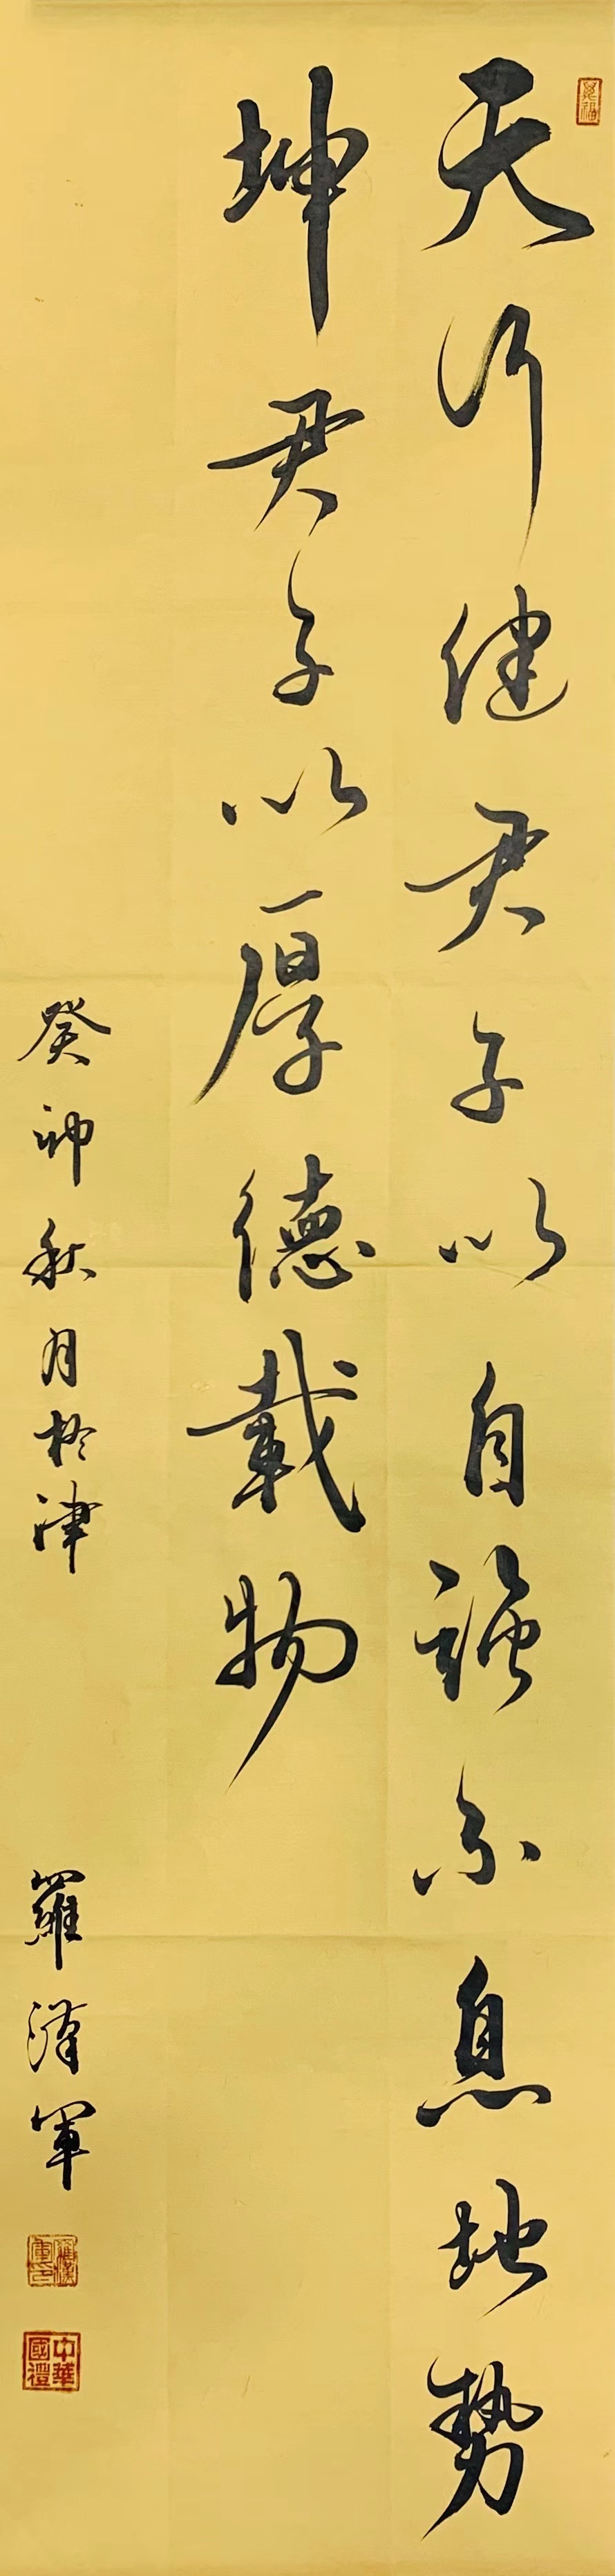 天行健君子以自强不息地势
坤君子以厚德載物
癸卯秋月於津
羅漢軍
中華國禮